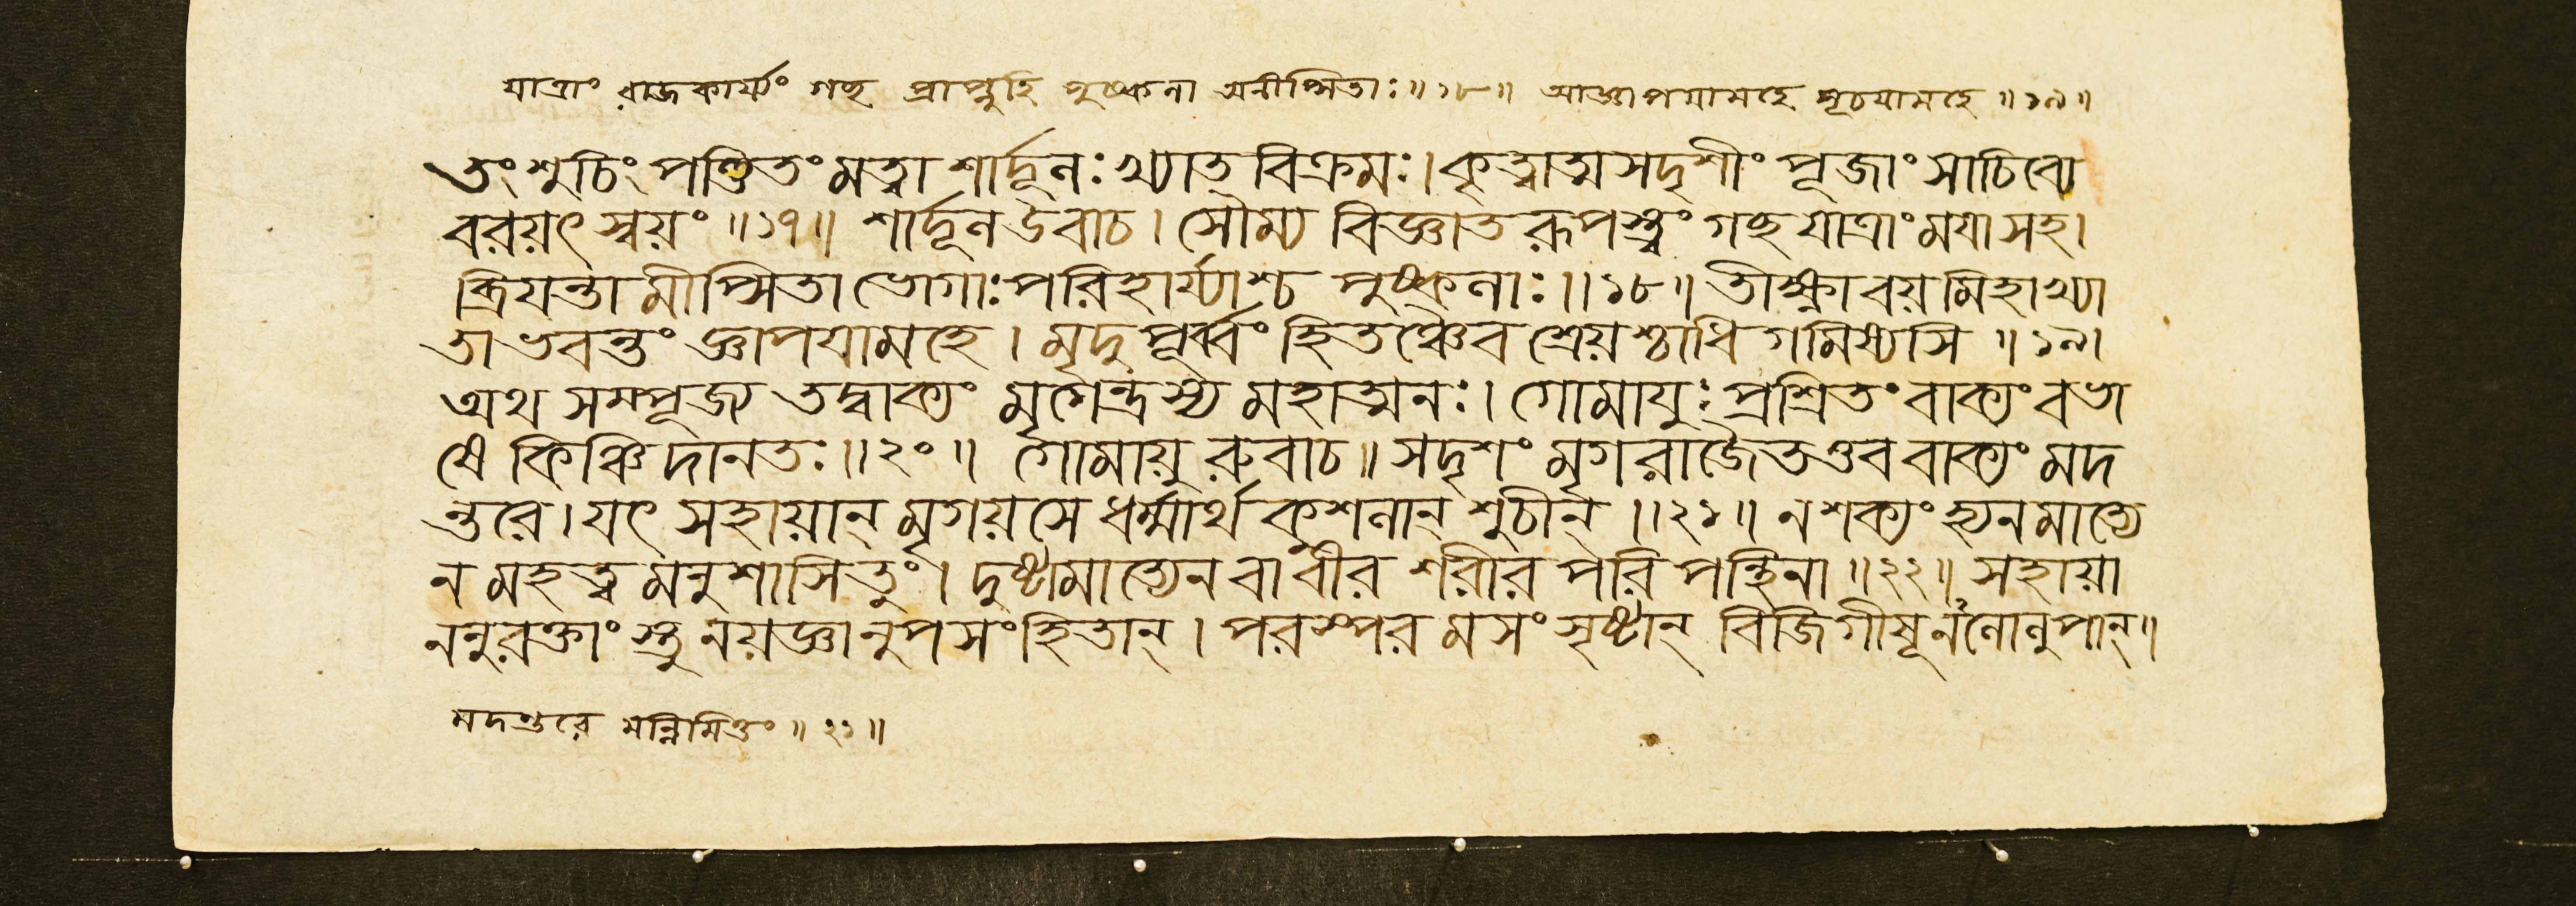 যাত্রাং রাজকার্য্যং গচ্ছ প্রাপ্নুহি পুষ্কলা অনীপ্সিতাঃ ॥ ১৮ ॥ আজ্ঞাপয়ামহে সূচয়ামহে ॥ ১৯ ॥
তং শুচিং পণ্ডিতং মত্বা শার্দ্দূলঃ খ্যাত বিক্রমঃ। কৃত্বাত্ম সদৃশীং পূজাং সাচিব্যে
বরয়ৎ স্বয়ং ॥ ১৭ ॥ শার্দ্দূল উবাচ। সৌম্য বিজ্ঞাত রূপস্ত্বং গচ্ছ যাত্রাং ময়া সহ।
ব্রিয়ন্তা মীপ্সিতা ভোগাঃ পরিহার্য্যাশ্চ পুষ্কলাঃ ॥ ১৮ ॥ তীক্ষ্ণা বয় মিহাখ্যা
তা ভবন্তং জ্ঞাপয়ামহে। মৃদু পূর্ব্বং হিতঞ্চৈব শ্রেয়শ্চাধি গমিষ্যসি ॥ ১৯।
অথ সম্পূজ্য তদ্বাক্যং মৃগেন্দ্রস্য মহাত্মনঃ। গোমায়ুঃ প্রশ্রিতং বাক্যং বভা
ষে কিঞ্চি দানতঃ ॥ ২০ ॥ গোমায়ু রুবাচ ॥ সদৃশং মৃগ রাজৈতত্তব বাক্যং মদ
ন্তরে। যৎ সহায়ান্ মৃগয়সে ধর্ম্মার্থ কুশলান্ শুচীন্ ॥ ২১ ॥ ন শক্যং হ্যনমাত্যে
ন মহত্ত্ব মনুশাসিতুং। দুষ্টামাত্যেন বা বীর শরীর পরি পন্থিনা ॥ ২২ ॥ সহায়া
ননুরক্তাংস্তু নয়জ্ঞানুপসংহিতান্। পরস্পর মসংসৃষ্টান্ বিজিগীষূনলোলুপান্ ॥
মদন্তরে মন্নিমিত্তং ॥ ২১ ॥